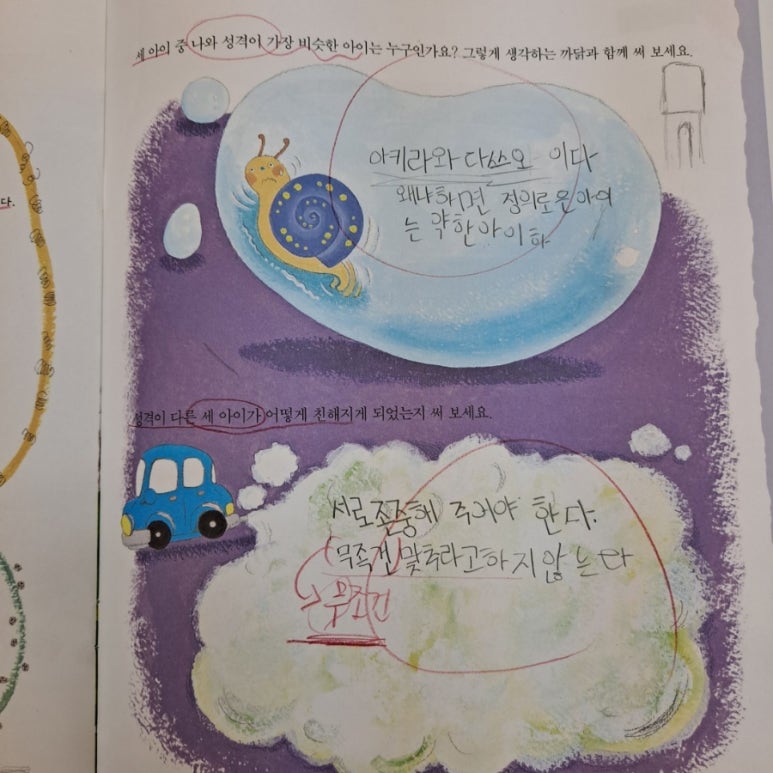 세 아이 중 나와 성격이 가장 비슷한 아이는 누구인가요? 그렇게 생각하는 까닭과 함께 써 보세요.
아키라와 다쓰오 이다
왜냐하면 정의로운 아이
는 약한아이 하
다.
성격이 다른 세 아이가 어떻게 친해지게 되었는지 써 보세요.
서로 존중해 주어야 한다.
무족건 맞추라고하지 않는다
→무조건